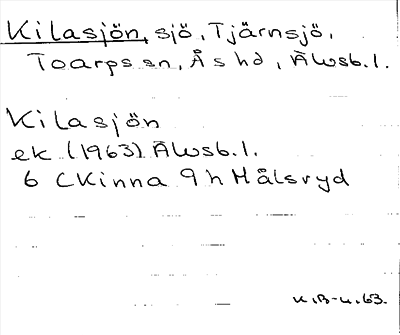 Kilasjön, sjö, Tjärnsjö,
Toarps sn, Ås hd, Älvsb. l.
Kilasjön
ek (1963) Älvsb. l.
6 C Kinna 9 h Målsryd
K.B-u. 63.